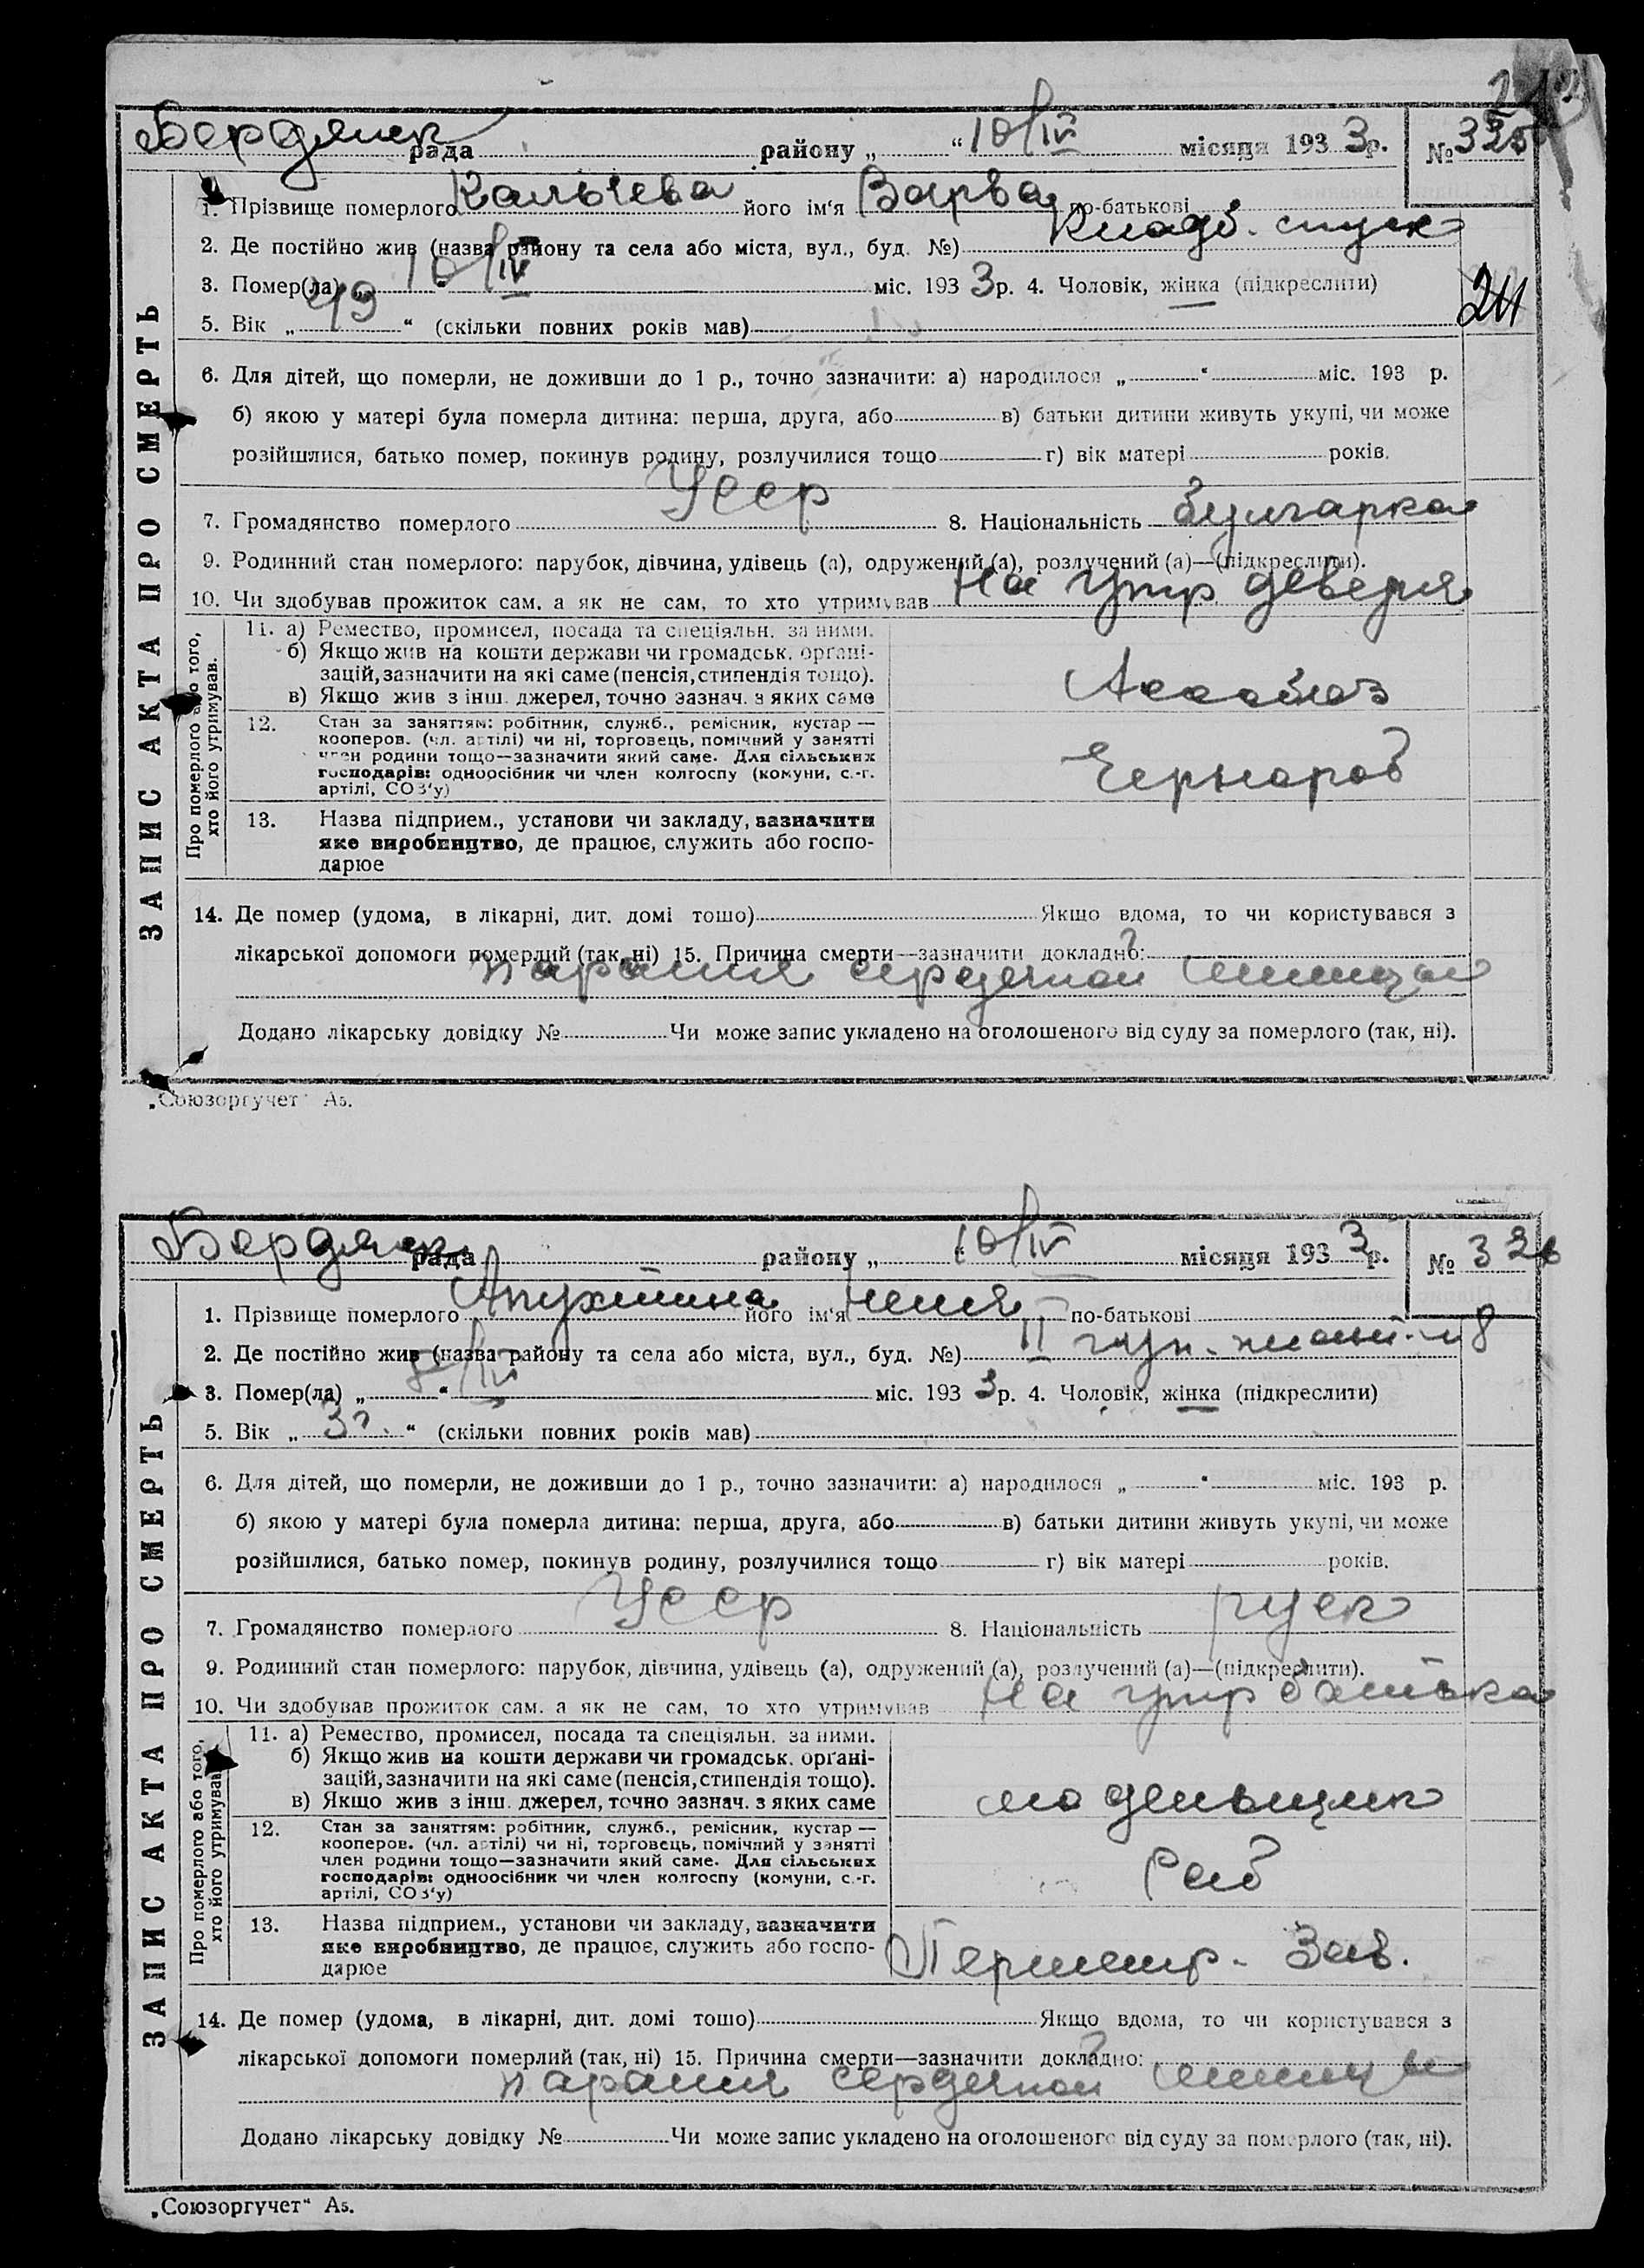 Бердянск рада районy „ “ 10/IV місяця 1933 р. № 325
1. Прізвище померлого Кальчева його ім'я Варва по-батькові
2. Де постійно жив (назва району та села або міста, вул., буд. №) Кладб. спуск
3. Помер(ла) „ 10/IV “ міс. 1933 р. 4. Чоловік, жінка (підкреслити)
211
5. Вік „ 49 “ (скільки повних років мав)
6. Для дітей, що померли, не доживши до 1 р., точно зазначити: а) народилося „ “ міс. 193 р.
б) якою у матері була померла дитина: перша, друга, або в) батьки дитини живуть укупі, чи може
розійшлися, батько помер, покинув родину, розлучилися тощо г) вік матері років.
7. Громадянство померлого Усср 8. Національність булгарка
9. Родинний стан померлого: парубок, дівчина, удівець (а), одружений (а), розлучений (а)—(підкреслити).
10. Чи здобував прожиток сам, а як не сам, то хто утримував на утр деверя
ЗАПИС АКТА ПРО СМЕРТЬ
Про померлого або того, хто його утримував.
11. а) Ремество, промисел, посада та спеціяльн. за ними.
б) Якщо жив на кошти держави чи громадськ. орґані-
зацій, зазначити на які саме (пенсія, стипендія тощо).
в) Якщо жив з інш. джерел, точно зазнач. з яких саме
12. Стан за заняттям: робітник, служб., ремісник, кустар —
кооперов. (чл. артілі) чи ні, торговець, помічний у занятті
член родини тощо—зазначити який саме. Для сільських
господарів: одноосібник чи член колгоспу (комуни, с.-г.
артілі, СОЗ'у)
Чернораб
13. Назва підприєм., установи чи закладу, зазначити
яке виробництво, де працює, служить або госпо-
дарює
14. Де помер (удома, в лікарні, дит. домі тощо) Якщо вдома, то чи користувався з
лікарської допомоги померлий (так, ні) 15. Причина смерти—зазначити докладно:
паралич сердечной мышцы
Додано лікарську довідку № Чи може запис укладено на оголошеного від суду за померлого (так, ні).
„Союзоргучет“ А5.
Бердянск рада району „ “ 10/IV місяця 1933 р. № 326
1. Прізвище померлого Апухтина його ім'я по-батькові
2. Де постійно жив (назва району та села або міста, вул., буд. №) II 8
3. Помер(ла) „ /IV “ міс. 1933 р. 4. Чоловік, жінка (підкреслити)
5. Вік „ 3 г. “ (скільки повних років мав)
6. Для дітей, що померли, не доживши до 1 р., точно зазначити: а) народилося „ “ міс. 193 р.
б) якою у матері була померла дитина: перша, друга, або в) батьки дитини живуть укупі, чи може
розійшлися, батько помер, покинув родину, розлучилися тощо г) вік матері років.
7. Громадянство померлого Усср 8. Національність руск
9. Родинний стан померлого: парубок, дівчина, удівець (а), одружений (а), розлучений (а)—(підкреслити).
10. Чи здобував прожиток сам, а як не сам, то хто утримував на утр батька
ЗАПИС АКТА ПРО СМЕРТЬ
Про померлого або того, хто його утримував
11. а) Ремество, промисел, посада та спеціяльн. за ними.
б) Якщо жив на кошти держави чи громадськ. орґані-
зацій, зазначити на які саме (пенсія, стипендія тощо).
в) Якщо жив з інш. джерел, точно зазнач. з яких саме
модельщик
12. Стан за заняттям: робітник, служб., ремісник, кустар —
кооперов. (чл. артілі) чи ні, торговець, помічний у занятті
член родини тощо—зазначити який саме. Для сільських
господарів: одноосібник чи член колгоспу (комуни, с.-г.
артілі, СОЗ'у)
Раб
13. Назва підприєм., установи чи закладу, зазначити
яке виробництво, де працює, служить або госпо-
дарює
Першотр. Зав.
14. Де помер (удома, в лікарні, дит. домі тощо) Якщо вдома, то чи користувався з
лікарської допомоги померлий (так, ні) 15. Причина смерти—зазначити докладно:
паралич сердечной мышцы
Додано лікарську довідку № Чи може запис укладено на оголошеного від суду за померлого (так, ні).
„Союзоргучет“ А5.